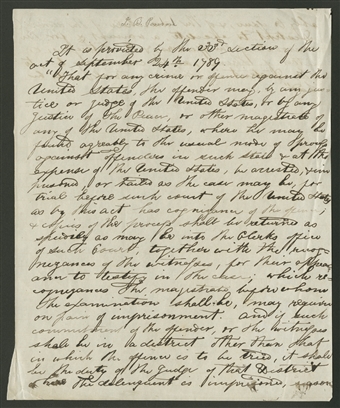 It is provided by the 33d section of the
act of September 24th 1789
"That for any crime or offence against the
United States, the offender may, by any jus-
tice or judge of the United States, or by any
justice of the Peace, or other magistrate of
any of the United States, where he may be
found, agreeably to the usual mode of process
against offenders in such state & at the
expense of the United States, be arrested, & im
prisoned, or bailed as the case may be, for
trial before such court of the United States
as by this act has cognizance of the
& copies of the process shall be returned as
speedily as may be into the Clerks office
of such Court, together with the recog-
nizances of the witnesses, for their appear
ance to testify in the case; which re
cognizances the magistrate before whom
the examination shall be, may require
on pain of imprisonment. and if such
commitment of the offender, or the witnesses
shall be in a district other than that
in which the offence is to be tried, it shall
be the duty of the Judge of that District
where the delinquent is imprisoned,